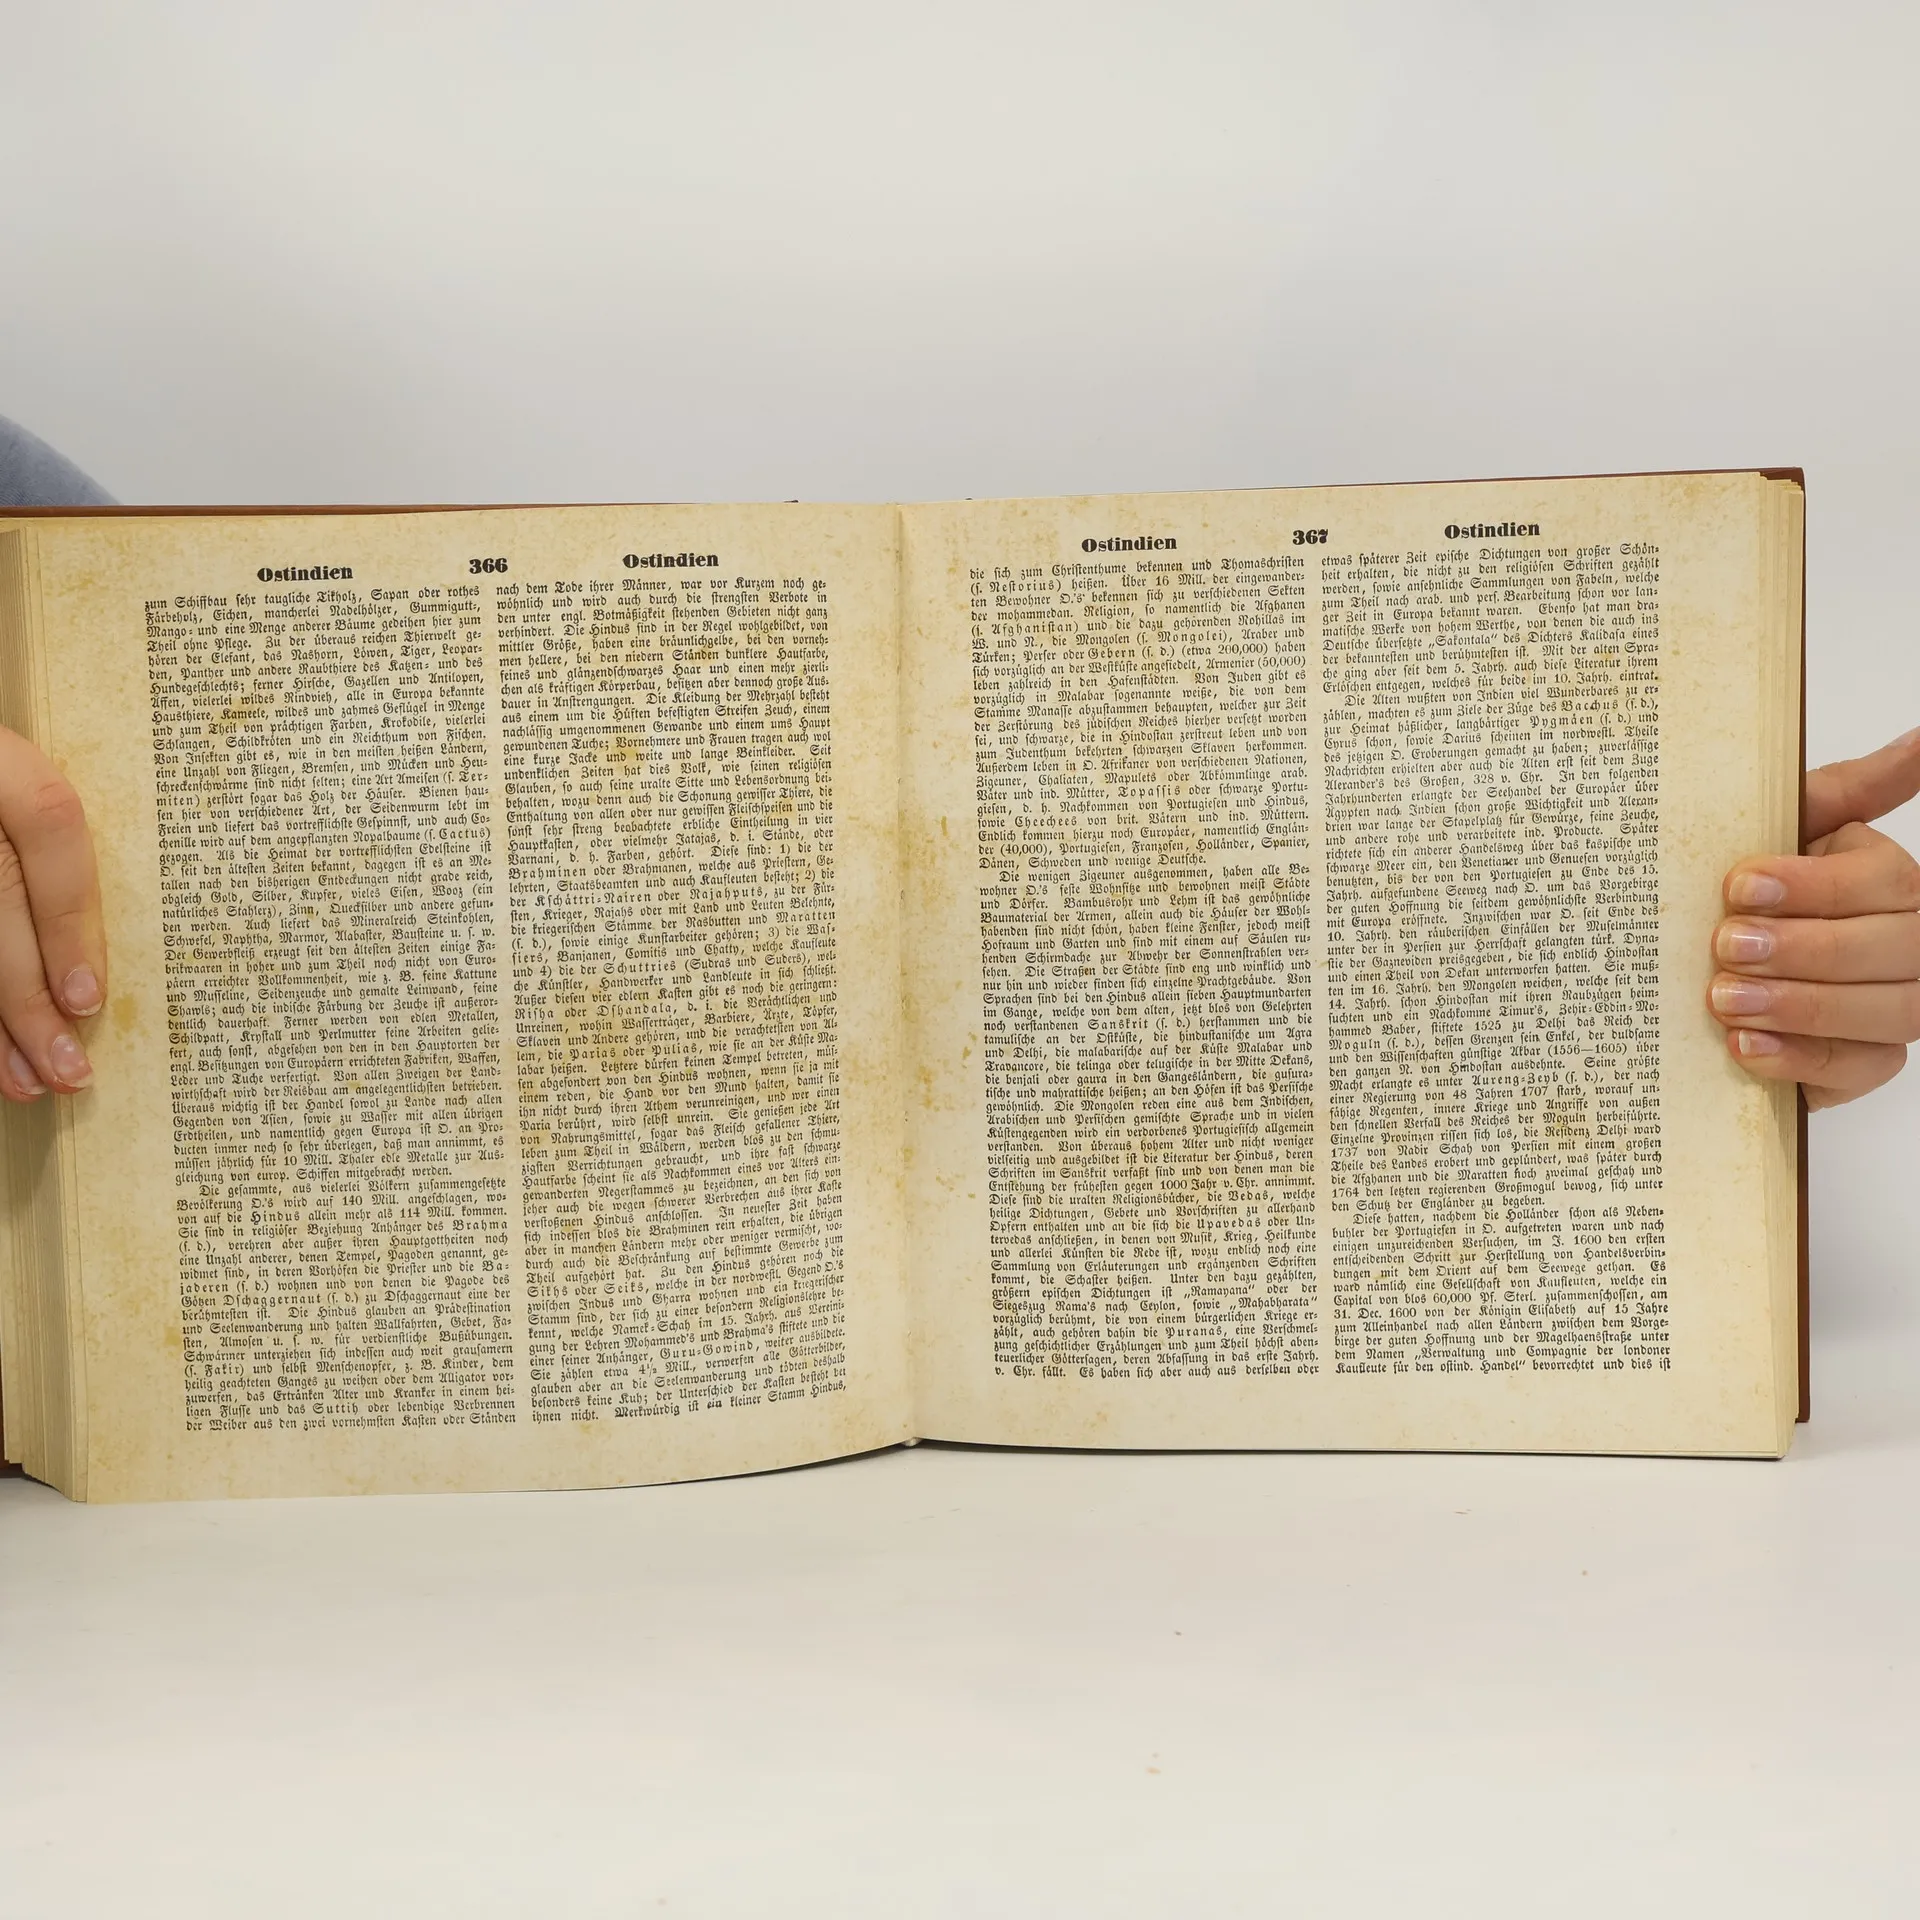 Ostindien 366 Ostindien
zum Schiffbau sehr taugliche Tikholz, Sapan oder rothes
Färbeholz, Eichen, mancherlei Nadelhölzer, Gummigutt-,
Mango- und eine Menge anderer Bäume gedeihen hier zum
Theil ohne Pflege. Zu der überaus reichen Thierwelt ge-
hören der Elefant, das Nashorn, Löwen, Tiger, Leopar-
den, Panther und andere Raubthiere des Katzen- und des
Hundegeschlechts; ferner Hirsche, Gazellen und Antilopen,
Affen, vielerlei wildes Rindvieh, alle in Europa bekannte
Hausthiere, Kameele, wildes und zahmes Geflügel in Menge
und zum Theil von prächtigen Farben, Krokodile, vielerlei
Schlangen, Schildkröten und ein Reichthum von Fischen.
Von Insekten gibt es, wie in den meisten heißen Ländern,
eine Unzahl von Fliegen, Bremsen, und Mücken und Heu-
schreckenschwärme sind nicht selten; eine Art Ameisen (s. Ter-
miten) zerstört sogar das Holz der Häuser. Bienen hau-
sen hier von verschiedener Art, der Seidenwurm lebt im
Freien und liefert das vortrefflichste Gespinnst, und auch Co-
chenille wird auf dem angepflanzten Nopalbaume (s. Cactus)
gezogen. Als die Heimat der vortrefflichsten Edelsteine ist
O. seit den ältesten Zeiten bekannt, dagegen ist es an Me-
tallen nach den bisherigen Entdeckungen nicht grade reich,
obgleich Gold, Silber, Kupfer, vieles Eisen, Wooz (ein
natürliches Stahlerz), Zinn, Quecksilber und andere gefun-
den werden. Auch liefert das Mineralreich Steinkohlen,
Schwefel, Naphtha, Marmor, Alabaster, Bausteine u. s. w.
Der Gewerbfleiß erzeugt seit den ältesten Zeiten einige Fa-
brikwaaren in hoher und zum Theil noch nicht von Euro-
päern erreichter Vollkommenheit, wie z. B. feine Kattune
und Musseline, Seidenzeuche und gemalte Leinwand, feine
Shawls; auch die indische Färbung der Zeuche ist außeror-
dentlich dauerhaft. Ferner werden von edlen Metallen,
Schildpatt, Krystall und Perlmutter feine Arbeiten gelie-
fert, auch sonst, abgesehen von den in den Hauptorten der
engl. Besitzungen von Europäern errichteten Fabriken, Waffen,
Leder und Tuche verfertigt. Von allen Zweigen der Land-
wirthschaft wird der Reisbau am angelegentlichsten betrieben.
Überaus wichtig ist der Handel sowol zu Lande nach allen
Gegenden von Asien, sowie zu Wasser mit allen übrigen
Erdtheilen, und namentlich gegen Europa ist O. an Pro-
ducten immer noch so sehr überlegen, daß man annimmt, es
müssen jährlich für 10 Mill. Thaler edle Metalle zur Aus-
gleichung von europ. Schiffen mitgebracht werden.
Die gesammte, aus vielerlei Völkern zusammengesetzte
Bevölkerung O.'s wird auf 140 Mill. angeschlagen, wo-
von auf die Hindus allein mehr als 114 Mill. kommen.
Sie sind in religiöser Beziehung Anhänger des Brahma
(s. d.), verehren aber außer ihren Hauptgottheiten noch
eine Unzahl anderer, denen Tempel, Pagoden genannt, ge-
widmet sind, in deren Vorhöfen die Priester und die Ba-
jaderen (s. d.) wohnen und von denen die Pagode des
Götzen Dschaggernaut (s. d.) zu Dschaggernaut eine der
berühmtesten ist. Die Hindus glauben an Prädestination
und Seelenwanderung und halten Wallfahrten, Gebet, Fa-
sten, Almosen u. s. w. für verdienstliche Bußübungen.
Schwärmer unterziehen sich indessen auch weit grausamern
(s. Fakir) und selbst Menschenopfer, z. B. Kinder, dem
heilig geachteten Ganges zu weihen oder dem Alligator vor-
zuwerfen, das Ertränken Alter und Kranker in einem hei-
ligen Flusse und das Suttih oder lebendige Verbrennen
der Weiber aus den zwei vornehmsten Kasten oder Ständen
nach dem Tode ihrer Männer, war vor Kurzem noch ge-
wöhnlich und wird auch durch die strengsten Verbote in
den unter engl. Botmäßigkeit stehenden Gebieten nicht ganz
verhindert. Die Hindus sind in der Regel wohlgebildet, von
mittler Größe, haben eine bräunlichgelbe, bei den vorneh-
men hellere, bei den niedern Ständen dunklere Hautfarbe,
feines und glänzendschwarzes Haar und einen mehr zierli-
chen als kräftigen Körperbau, besitzen aber dennoch große Aus-
dauer in Anstrengungen. Die Kleidung der Mehrzahl besteht
aus einem um die Hüften befestigten Streifen Zeuch, einem
nachlässig umgenommenen Gewande und einem ums Haupt
gewundenen Tuche; Vornehmere und Frauen tragen auch wol
eine kurze Jacke und weite und lange Beinkleider. Seit
undenklichen Zeiten hat dies Volk, wie seinen religiösen
Glauben, so auch seine uralte Sitte und Lebensordnung bei-
behalten, wozu denn auch die Schonung gewisser Thiere, die
Enthaltung von allen oder nur gewissen Fleischspeisen und die
sonst sehr streng beobachtete erbliche Eintheilung in vier
Hauptkasten, oder vielmehr Jatajas, d. i. Stände, oder
Varnani, d. h. Farben, gehört. Diese sind: 1) die der
Brahminen oder Brahmanen, welche aus Priestern, Ge-
lehrten, Staatsbeamten und auch Kaufleuten besteht; 2) die
der Kschättri-Nairen oder Rajahputs, zu der Für-
sten, Krieger, Rajahs oder mit Land und Leuten Belehnte,
die kriegerischen Stämme der Rasbutten und Maratten
(s. d.), sowie einige Kunstarbeiter gehören; 3) die Waf-
siers, Banjanen, Comitis und Chatty, welche Kaufleute
und 4) die der Schuttries (Sudras und Suders), wel-
che Künstler, Handwerker und Landleute in sich schließt.
Außer diesen vier edlern Kasten gibt es noch die geringern:
Risha oder Dshandala, d. i. die Verächtlichen und
Unreinen, wohin Wasserträger, Barbiere, Ärzte, Töpfer,
Sklaven und Andere gehören, und die verachtetsten von Al-
lem, die Parias oder Pulias, wie sie an der Küste Ma-
labar heißen. Letztere dürfen keinen Tempel betreten, müs-
sen abgesondert von den Hindus wohnen, wenn sie ja mit
einem reden, die Hand vor den Mund halten, damit sie
ihn nicht durch ihren Athem verunreinigen, und wer einen
Paria berührt, wird selbst unrein. Sie genießen jede Art
von Nahrungsmittel, sogar das Fleisch gefallener Thiere,
leben zum Theil in Wäldern, werden blos zu den schmu-
zigsten Verrichtungen gebraucht, und ihre fast schwarze
Hautfarbe scheint sie als Nachkommen eines vor Alters ein-
gewanderten Negerstammes zu bezeichnen, an den sich von
jeher auch die wegen schwerer Verbrechen aus ihrer Kaste
verstoßenen Hindus anschlossen. In neuester Zeit haben
sich indessen blos die Brahminen rein erhalten, die übrigen
aber in manchen Ländern mehr oder weniger vermischt, wo-
durch auch die Beschränkung auf bestimmte Gewerbe zum
Theil aufgehört hat. Zu den Hindus gehören noch die
Sikhs oder Seiks, welche in der nordwestl. Gegend O.'s
zwischen Indus und Gharra wohnen und ein kriegerischer
Stamm sind, der sich zu einer besondern Religionslehre be-
kennt, welche Namek-Schah im 15. Jahrh. aus Vereini-
gung der Lehren Mohammed's und Brahma's stiftete und die
einer seiner Anhänger, Guru-Gowind, weiter ausbildete.
Sie zählen etwa 4½ Mill., verwerfen alle Götterbilder,
glauben aber an die Seelenwanderung und tödten deshalb
besonders keine Kuh; der Unterschied der Kasten besteht bei
ihnen nicht. Merkwürdig ist ein kleiner Stamm Hindus,
Ostindien 367 Ostindien
die sich zum Christenthume bekennen und Thomaschristen
(s. Nestorius) heißen. Über 16 Mill. der eingewander-
ten Bewohner O.'s' bekennen sich zu verschiedenen Sekten
der mohammedan. Religion, so namentlich die Afghanen
(s. Afghanistan) und die dazu gehörenden Rohillas im
W. und N., die Mongolen (s. Mongolei), Araber und
Türken; Perser oder Gebern (s. d.) (etwa 200,000) haben
sich vorzüglich an der Westküste angesiedelt, Armenier (50,000)
leben zahlreich in den Hafenstädten. Von Juden gibt es
vorzüglich in Malabar sogenannte weiße, die von dem
Stamme Manasse abzustammen behaupten, welcher zur Zeit
der Zerstörung des jüdischen Reiches hierher versetzt worden
sei, und schwarze, die in Hindostan zerstreut leben und von
zum Judenthum bekehrten schwarzen Sklaven herkommen.
Außerdem leben in O. Afrikaner von verschiedenen Nationen,
Zigeuner, Chaliaten, Mapulets oder Abkömmlinge arab.
Väter und ind. Mütter, Topassis oder schwarze Portu-
giesen, d. h. Nachkommen von Portugiesen und Hindus,
sowie Cheechees von brit. Vätern und ind. Müttern.
Endlich kommen hierzu noch Europäer, namentlich Englän-
der (40,000), Portugiesen, Franzosen, Holländer, Spanier,
Dänen, Schweden und wenige Deutsche.
Die wenigen Zigeuner ausgenommen, haben alle Be-
wohner O.'s feste Wohnsitze und bewohnen meist Städte
und Dörfer. Bambusrohr und Lehm ist das gewöhnliche
Baumaterial der Armen, allein auch die Häuser der Wohl-
habenden sind nicht schön, haben kleine Fenster, jedoch meist
Hofraum und Garten und sind mit einem auf Säulen ru-
henden Schirmdache zur Abwehr der Sonnenstrahlen ver-
sehen. Die Straßen der Städte sind eng und winklich und
nur hin und wieder finden sich einzelne Prachtgebäude. Von
Sprachen sind bei den Hindus allein sieben Hauptmundarten
im Gange, welche von dem alten, jetzt blos von Gelehrten
noch verstandenen Sanskrit (s. d.) herstammen und die
tamulische an der Ostküste, die hindustanische um Agra
und Delhi, die malabarische auf der Küste Malabar und
Travancore, die telinga oder telugische in der Mitte Dekans,
die benjali oder gaura in den Gangesländern, die gusura-
tische und mahrattische heißen; an den Höfen ist das Persische
gewöhnlich. Die Mongolen reden eine aus dem Indischen,
Arabischen und Persischen gemischte Sprache und in vielen
Küstengegenden wird ein verdorbenes Portugiesisch allgemein
verstanden. Von überaus hohem Alter und nicht weniger
vielseitig und ausgebildet ist die Literatur der Hindus, deren
Schriften im Sanskrit verfaßt sind und von denen man die
Entstehung der frühesten gegen 1000 Jahr v. Chr. annimmt.
Diese sind die uralten Religionsbücher, die Vedas, welche
heilige Dichtungen, Gebete und Vorschriften zu allerhand
Opfern enthalten und an die sich die Upavedas oder Un-
tervedas anschließen, in denen von Musik, Krieg, Heilkunde
und allerlei Künsten die Rede ist, wozu endlich noch eine
Sammlung von Erläuterungen und ergänzenden Schriften
kommt, die Schaster heißen. Unter den dazu gezählten,
größern epischen Dichtungen ist „Ramayana“ oder der
Siegeszug Rama's nach Ceylon, sowie „Mahabharata“
vorzüglich berühmt, die von einem bürgerlichen Kriege er-
zählt, auch gehören dahin die Puranas, eine Verschmel-
zung geschichtlicher Erzählungen und zum Theil höchst aben-
teuerlicher Göttersagen, deren Abfassung in das erste Jahrh.
v. Chr. fällt. Es haben sich aber auch aus derselben oder
etwas späterer Zeit epische Dichtungen von großer Schön-
heit erhalten, die nicht zu den religiösen Schriften gezählt
werden, sowie ansehnliche Sammlungen von Fabeln, welche
zum Theil nach arab. und pers. Bearbeitung schon vor lan-
ger Zeit in Europa bekannt waren. Ebenso hat man dra-
matische Werke von hohem Werthe, von denen die auch ins
Deutsche übersetzte „Sakontala“ des Dichters Kalidasa eines
der bekanntesten und berühmtesten ist. Mit der alten Spra-
che ging aber seit dem 5. Jahrh. auch diese Literatur ihrem
Erlöschen entgegen, welches für beide im 10. Jahrh. eintrat.
Die Alten wußten von Indien viel Wunderbares zu er-
zählen, machten es zum Ziele der Züge des Bacchus (s. d.),
zur Heimat häßlicher, langbärtiger Pygmäen (s. d.) und
Cyrus schon, sowie Darius scheinen im nordwestl. Theile
des jetzigen O. Eroberungen gemacht zu haben; zuverlässige
Nachrichten erhielten aber auch die Alten erst seit dem Zuge
Alexander's des Großen, 328 v. Chr. In den folgenden
Jahrhunderten erlangte der Seehandel der Europäer über
Ägypten nach Indien schon große Wichtigkeit und Alexan-
drien war lange der Stapelplatz für Gewürze, feine Zeuche,
und andere rohe und verarbeitete ind. Producte. Später
richtete sich ein anderer Handelsweg über das kaspische und
schwarze Meer ein, den Venetianer und Genuesen vorzüglich
benutzten, bis der von den Portugiesen zu Ende des 15.
Jahrh. aufgefundene Seeweg nach O. um das Vorgebirge
der guten Hoffnung die seitdem gewöhnlichste Verbindung
mit Europa eröffnete. Inzwischen war O. seit Ende des
10. Jahrh. den räuberischen Einfällen der Muselmänner
unter der in Persien zur Herrschaft gelangten türk. Dyna-
stie der Gazneviden preisgegeben, die sich endlich Hindostan
und einen Theil von Dekan unterworfen hatten. Sie muß-
ten im 16. Jahrh. den Mongolen weichen, welche seit dem
14. Jahrh. schon Hindostan mit ihren Raubzügen heim-
suchten und ein Nachkomme Timur's, Zehir-Eddin-Mo-
hammed Baber, stiftete 1525 zu Delhi das Reich der
Moguln (s. d.), dessen Grenzen sein Enkel, der duldsame
und den Wissenschaften günstige Akbar (1556—1605) über
den ganzen N. von Hindostan ausdehnte. Seine größte
Macht erlangte es unter Aureng-Zeyb (s. d.), der nach
einer Regierung von 48 Jahren 1707 starb, worauf un-
fähige Regenten, innere Kriege und Angriffe von außen
den schnellen Verfall des Reiches der Moguln herbeiführte.
Einzelne Provinzen rissen sich los, die Residenz Delhi ward
1737 von Nadir Schah von Persien mit einem großen
Theile des Landes erobert und geplündert, was später durch
die Afghanen und die Maratten noch zweimal geschah und
1764 den letzten regierenden Großmogul bewog, sich unter
den Schutz der Engländer zu begeben.
Diese hatten, nachdem die Holländer schon als Neben-
buhler der Portugiesen in O. aufgetreten waren und nach
einigen unzureichenden Versuchen, im J. 1600 den ersten
entscheidenden Schritt zur Herstellung von Handelsverbin-
dungen mit dem Orient auf dem Seewege gethan. Es
ward nämlich eine Gesellschaft von Kaufleuten, welche ein
Capital von blos 60,000 Pf. Sterl. zusammenschossen, am
31. Dec. 1600 von der Königin Elisabeth auf 15 Jahre
zum Alleinhandel nach allen Ländern zwischen dem Vorge-
birge der guten Hoffnung und der Magelhaensstraße unter
dem Namen „Verwaltung und Compagnie der londoner
Kaufleute für den ostind. Handel“ bevorrechtet und dies ist